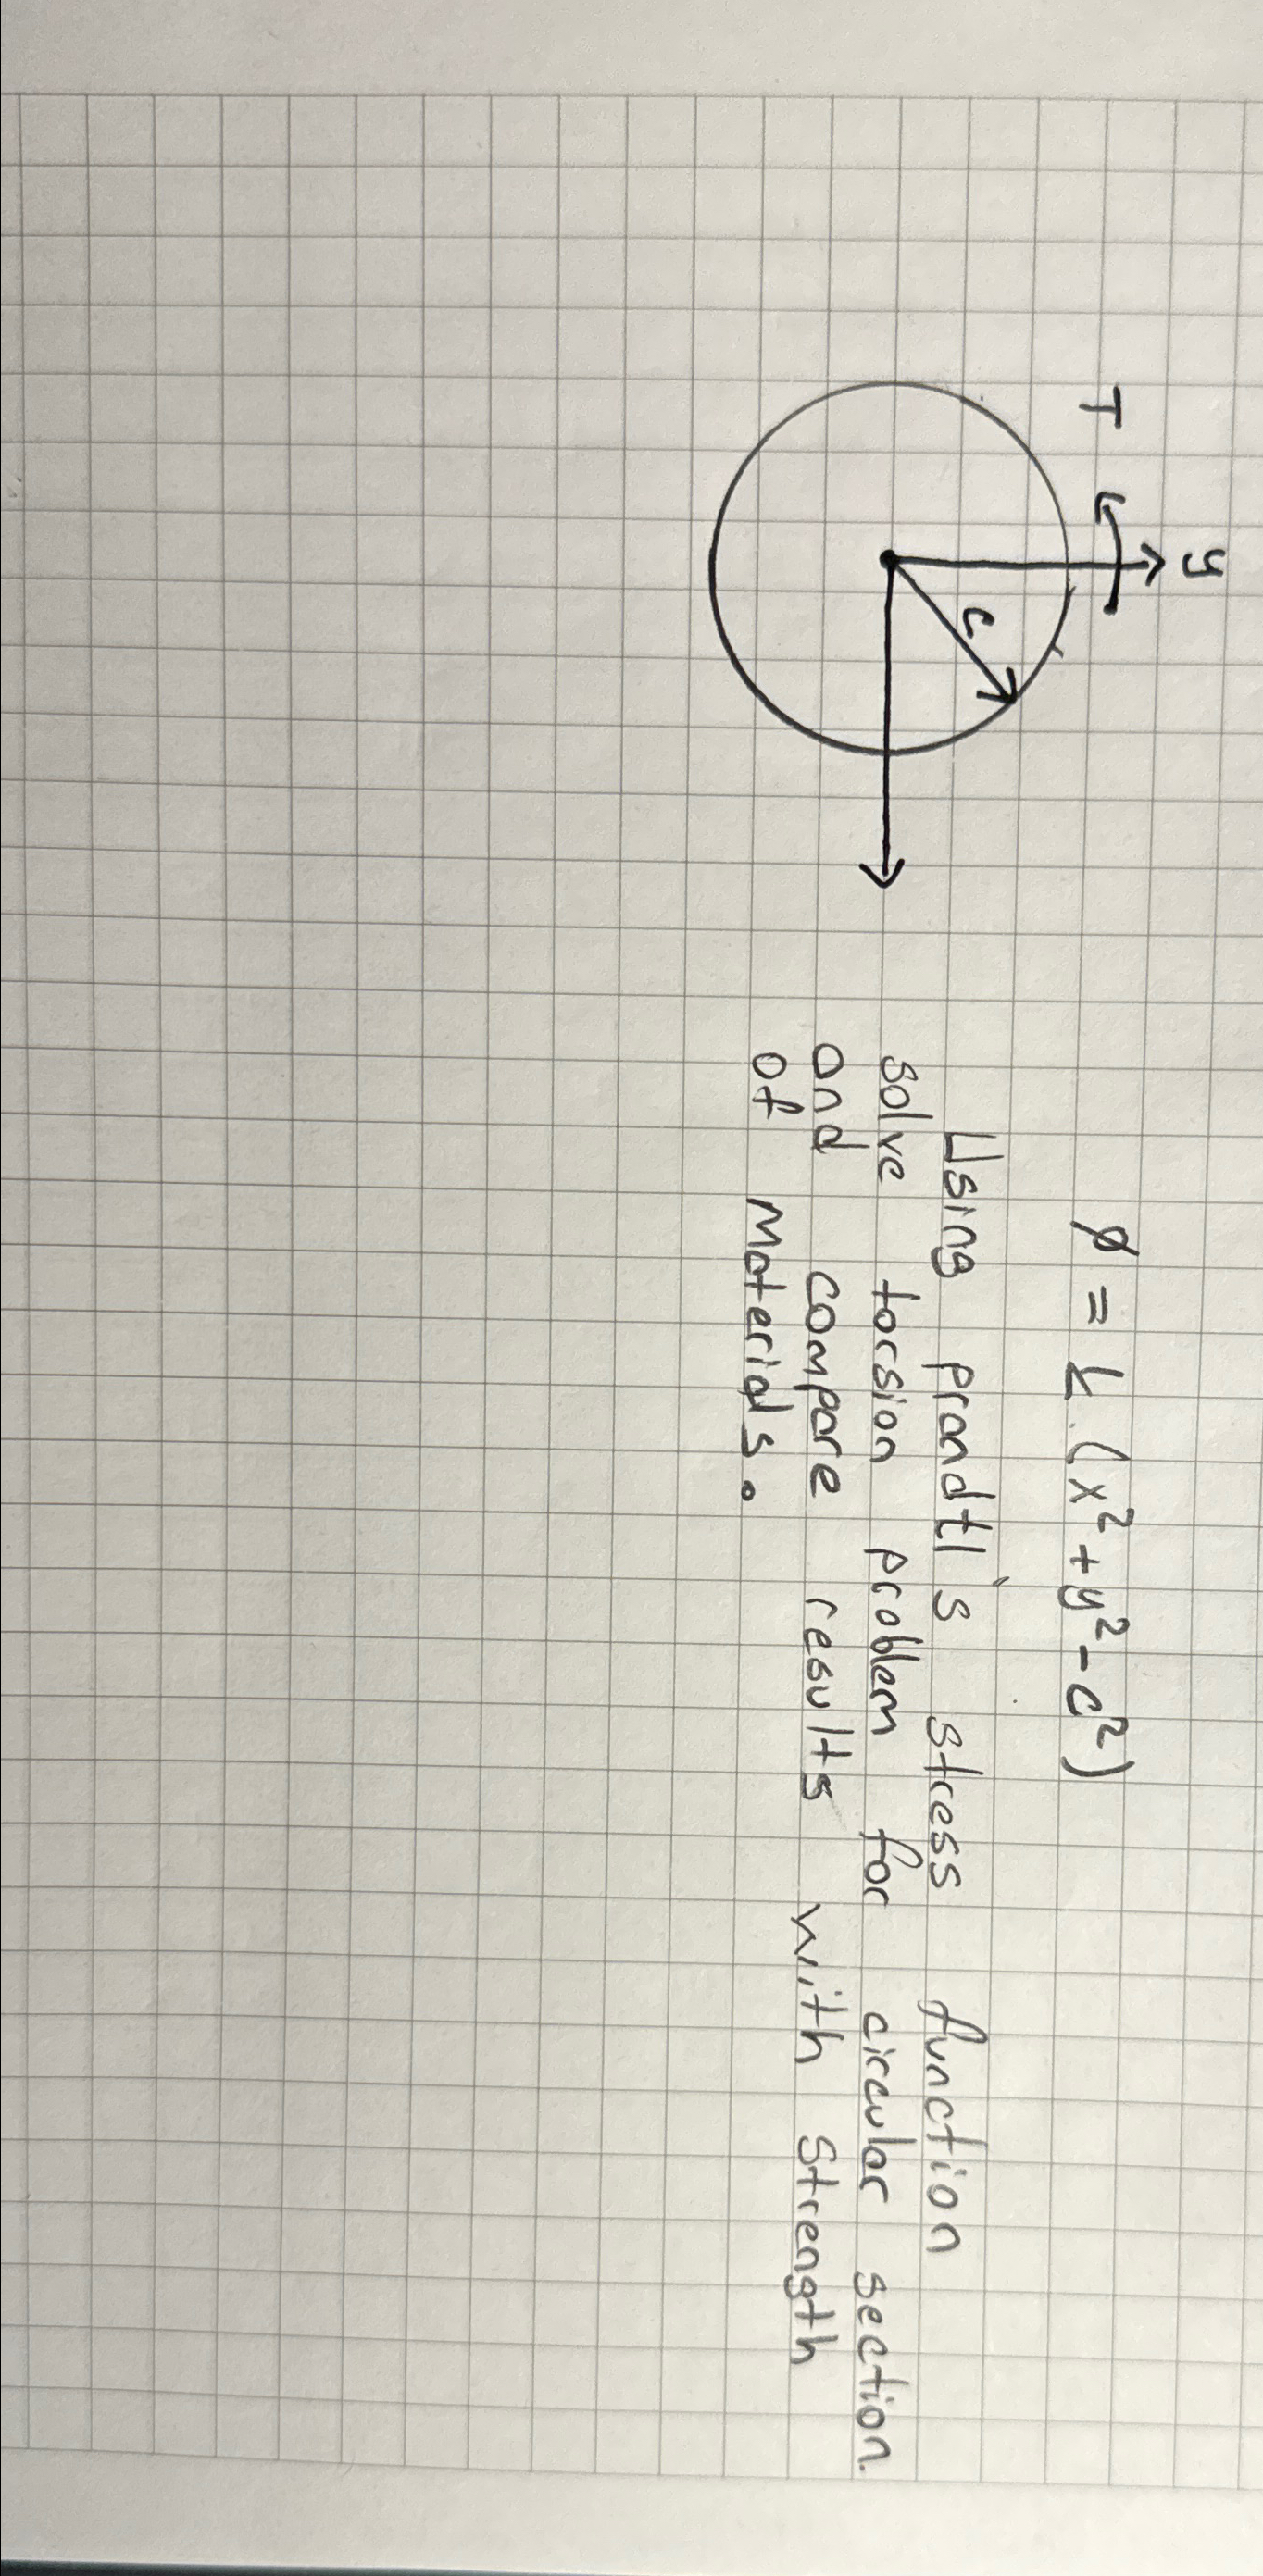 T
y
c
ø = k (x²+y²-c²)
Using prandtl's stress function
solve torsion problem for circular section.
and compare results with strength
of materials.